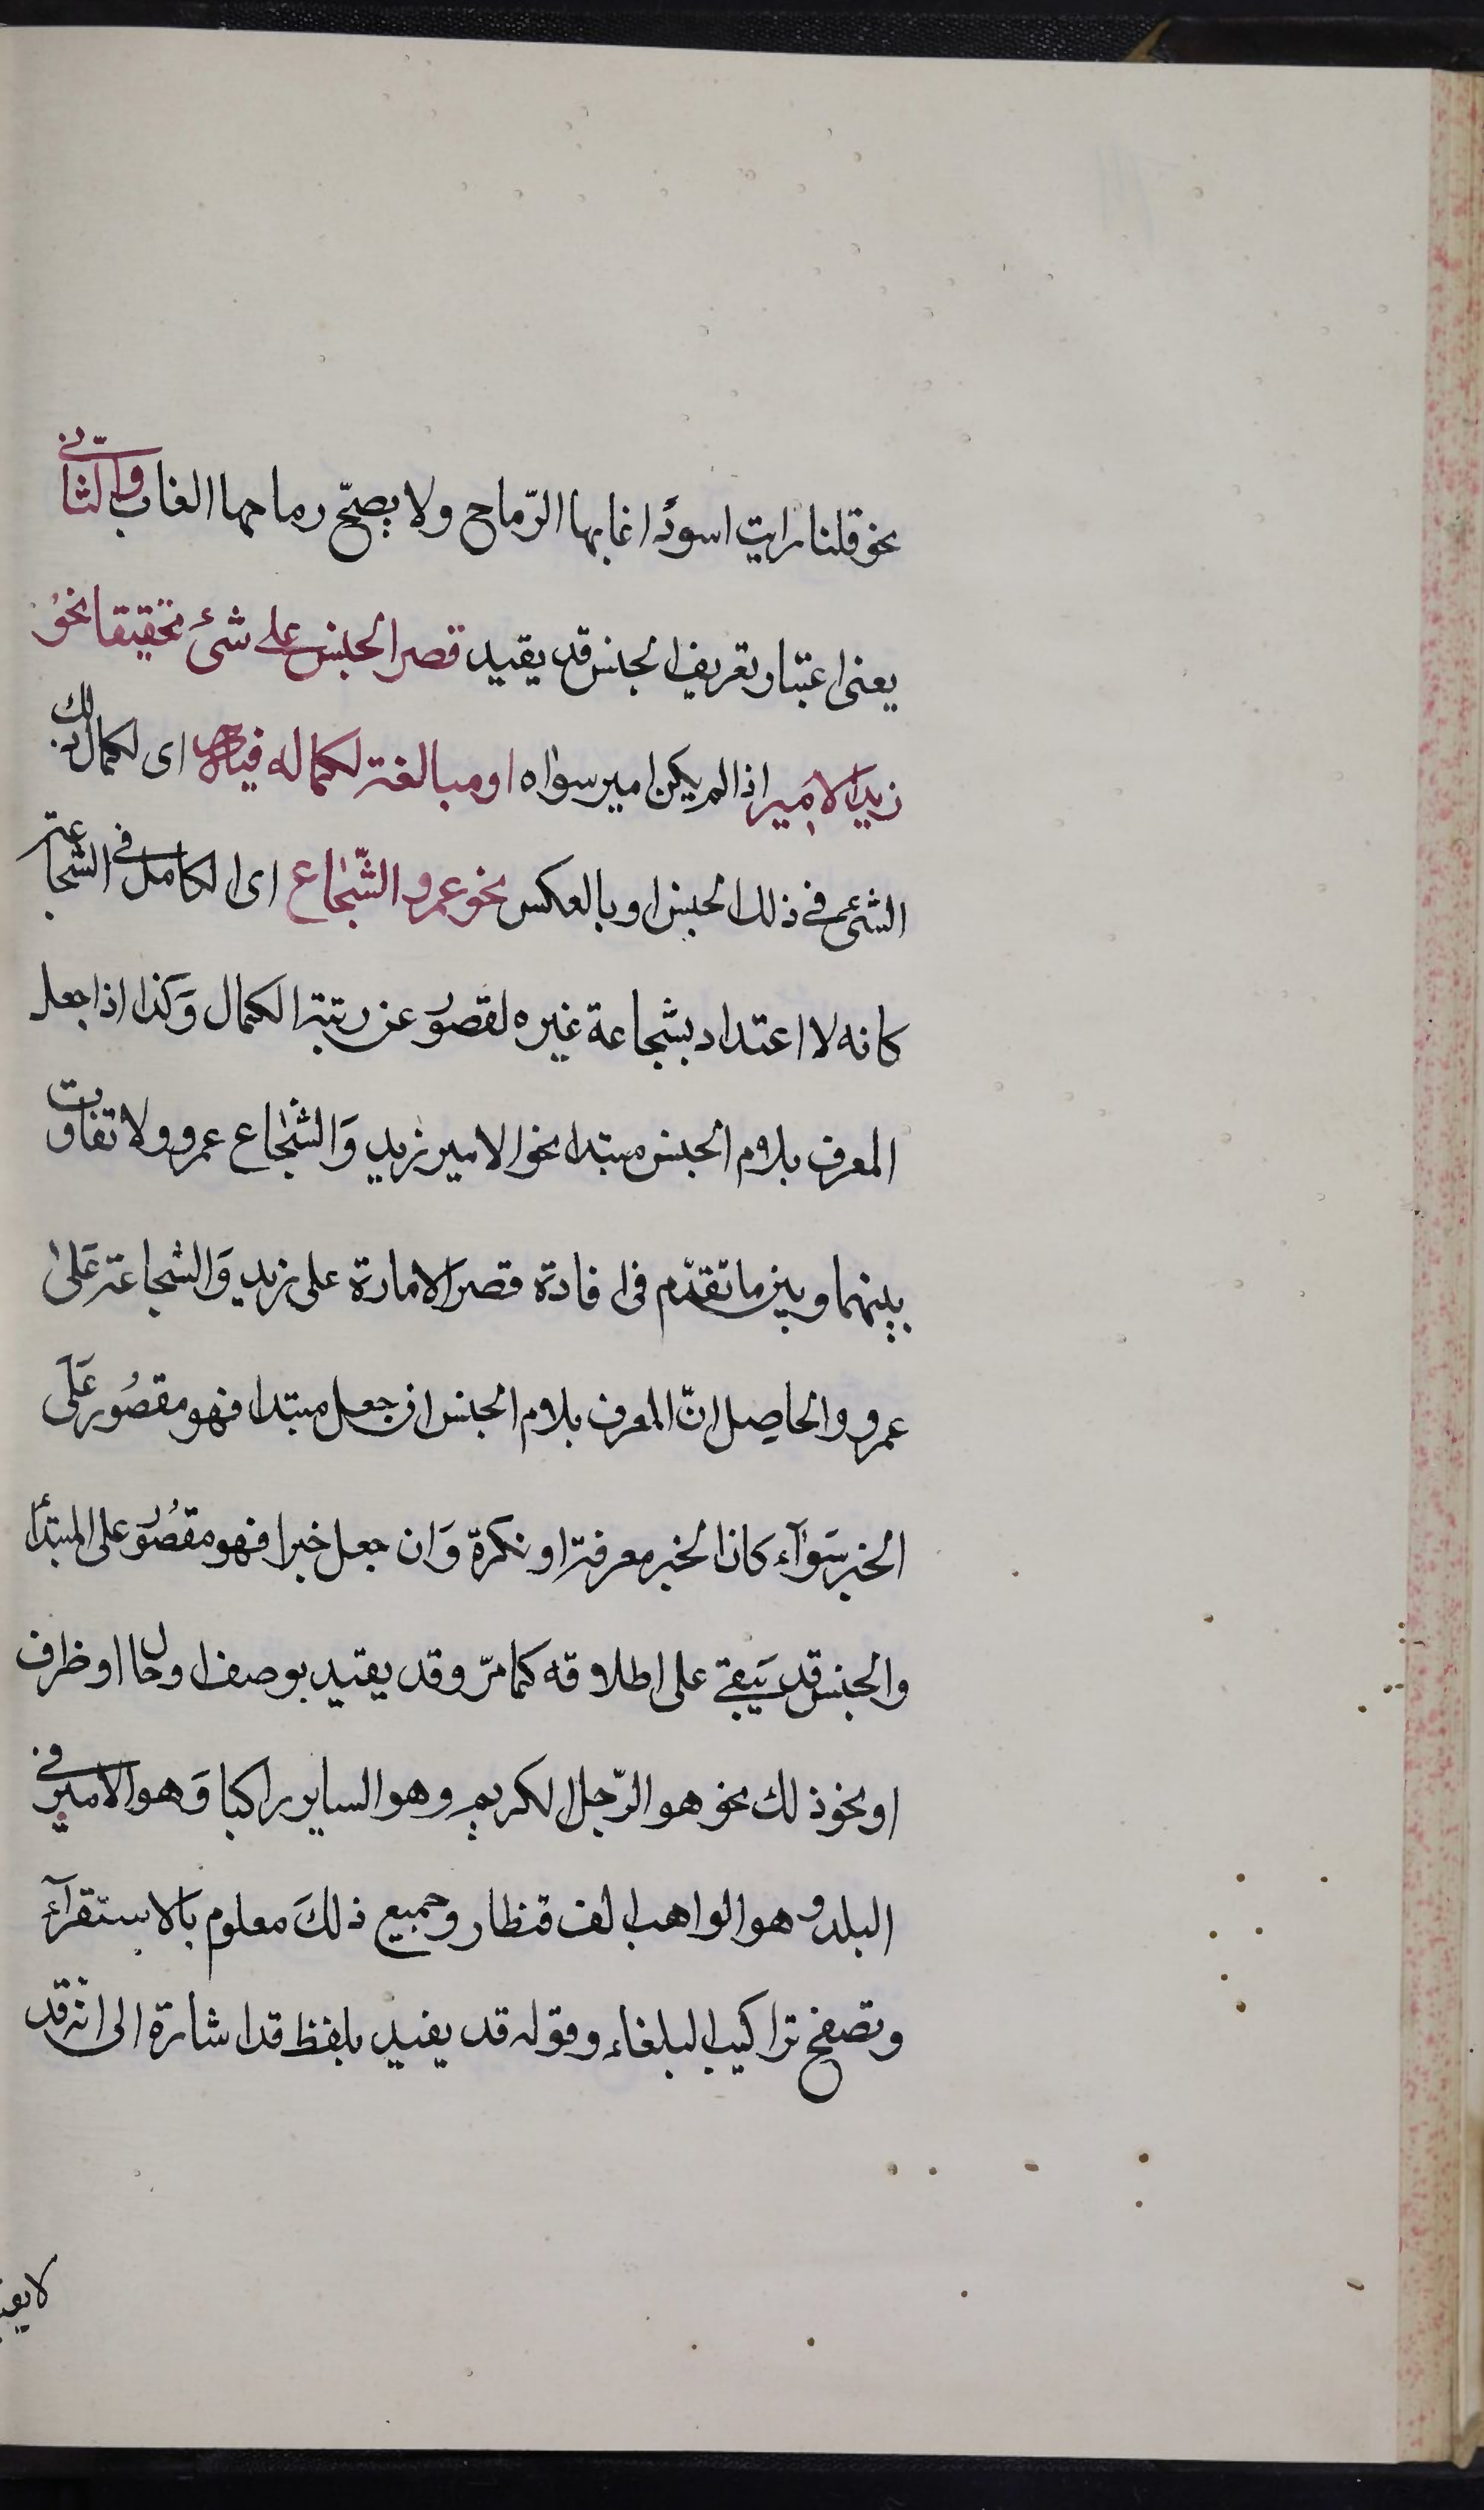 نحو قلنا رايت اسودًا غابها الرّماح ولا يصحّ رماحها الغاب والثاني
يعنى اعتبار تعريف الجنس قد يفيد قصر الجنس على شئ تحقيقا نحو
زيد الامير اذا لم يكن امير سواه او مبالغة لكماله فيه اى لكمال ذلك
الشئ فى ذلك الجنس او بالعكس نحو عمرو الشّجاع اى الكامل فى الشجاعة
كانه لا اعتداد بشجاعة غيره لقصور عن رتبة الكمال وَكذا اذا جعل
المعرف بلام الجنس مبتدا نحو الامير زيد وَالشّجاع عمرو ولا تفاوت
بينهما وبين ما تقدّم فى افادة قصر الامارة على زيد وَالشجاعة عَلىٰ
عمرو والحاصل انّ المعرف بلام الجنس ان جعل مبتدا فهو مقصُور عَلَى
الخبر سَوآء كان الخبر معرفة او نكرة وَان جعل خبرا فهو مقصُور على المبتدأ
والجنس قد يَبقى على اطلاقه كما مرّ وقد يقيد بوصف او حال او ظرف
او نحو ذلك نحو هو الرّجل الكريم وهو الساير راكبا وَهو الامير فى
البلد وهو الواهب الف قنطار وجميع ذلكَ معلوم بالاستقرآء
وتصفح تراكيب البلغاء وقوله قد يفيد بلفظ قد اشارة الى انّه قد